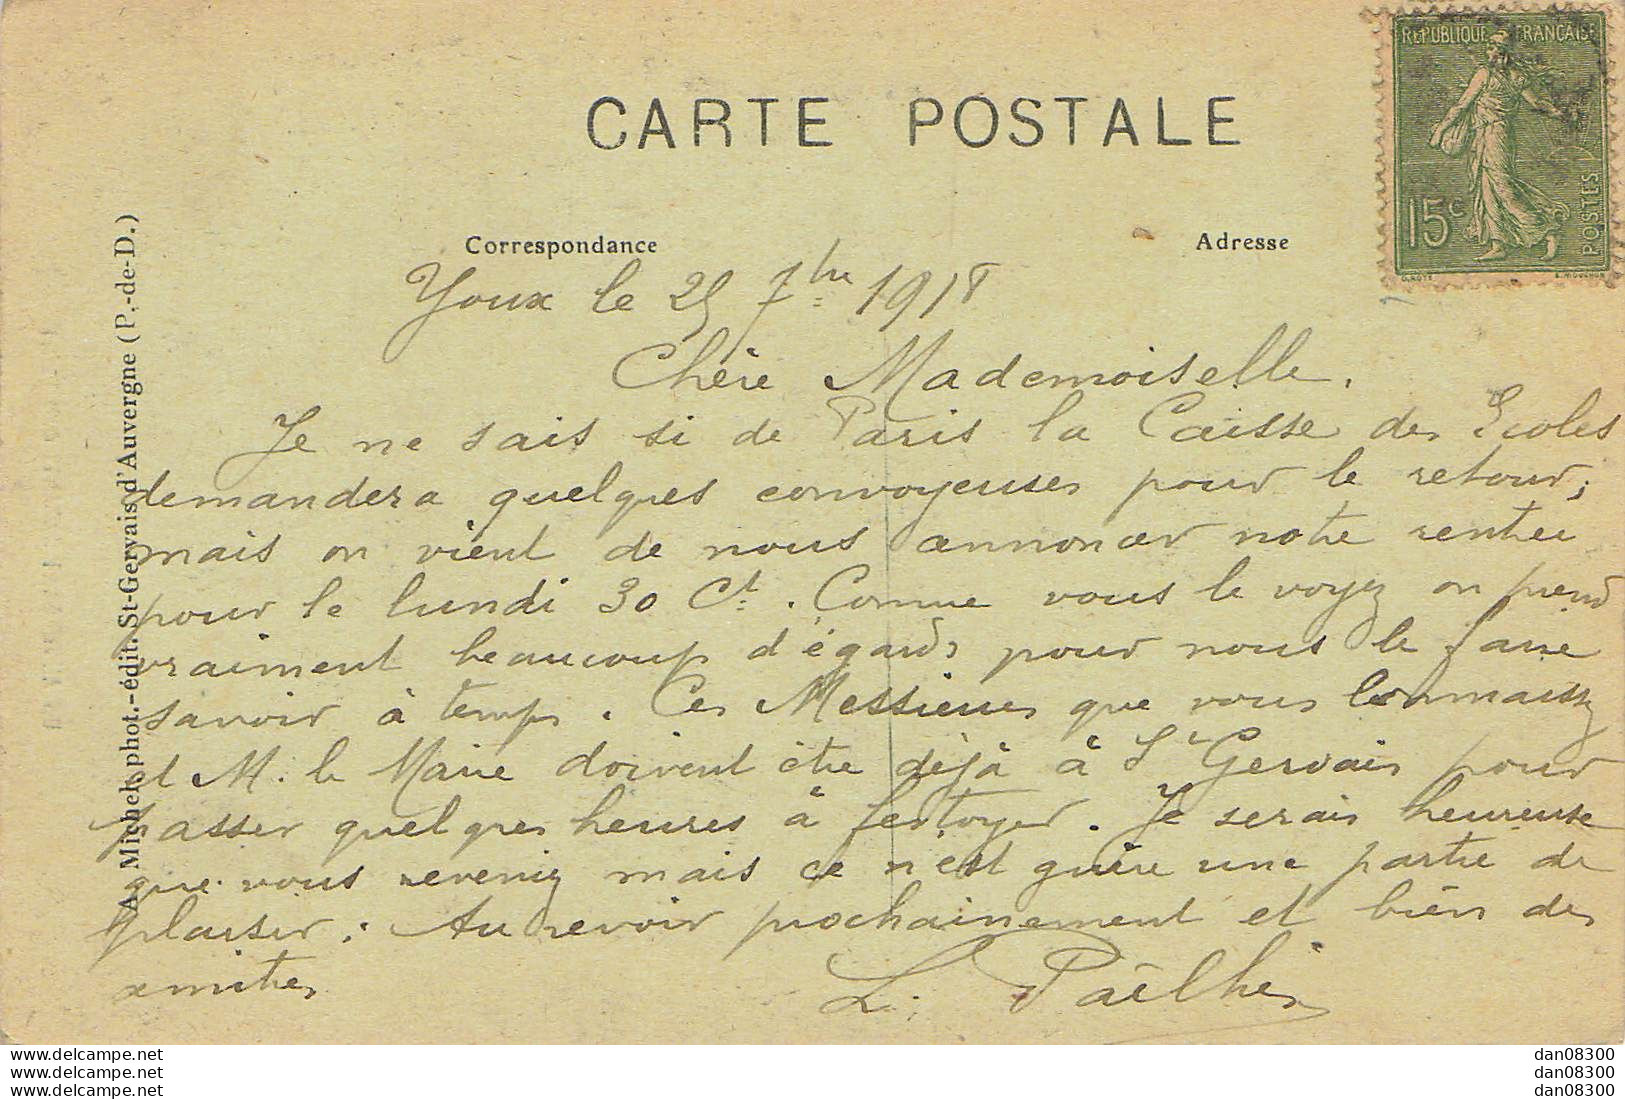 RÉPUBLIQUE FRANÇAISE
15c
POSTES
CARTE POSTALE
Correspondance
Adresse
A. Michel, phot.-édit. St-Gervais d'Auvergne (P.-de-D.)
Youx le 25 7bre 1918
Chère Mademoiselle.
Je ne sais si de Paris la Caisse des Ecoles
demandera quelques convoyeuses pour le retour;
mais on vient de nous annoncer notre rentrée
pour le lundi 30 Ct. Comme vous le voyez on prend
vraiment beaucoup d'égards pour nous le faire
savoir à temps. Ces Messieurs que vous connaissez
et M. le Maire doivent être déjà à St Gervais pour
passer quelques heures à festoyer. Je serais heureuse
que vous reveniez mais ce n'est guère une partie de
plaisir. Au revoir prochainement et bien des
amitiés
L. Pailhès
delcampe.net
delcampe.net
delcampe.net
dan08300
dan08300
dan08300